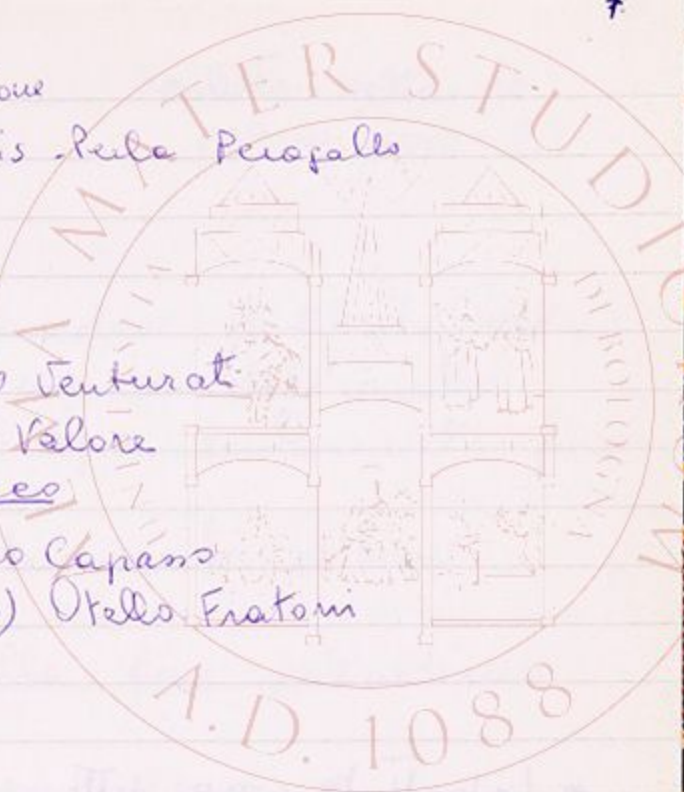 7
one
is - Perla Peragallo
o Venturati
Valore
eo
o Capasso
) Otello Fratoni
ALMA MATER STUDIORUM
A.D. 1088
DI BOLOGNA